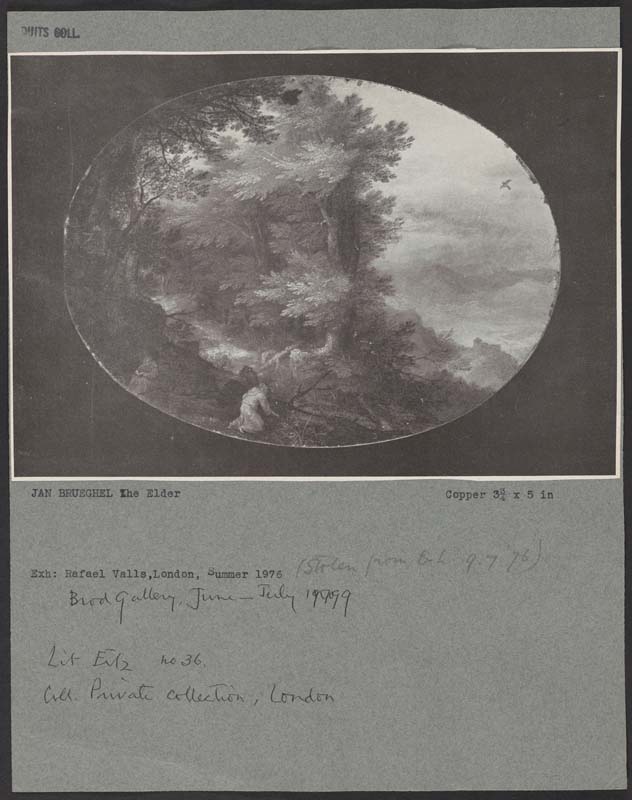 DUITS COLL.
JAN BRUEGHEL The Elder
Copper 3¾ x 5 in
Exh: Rafael Valls,London, Summer 1976 (Stolen from Exh. 9.7.76)
Brod Gallery, June – July 1979
Lit Ertz no 36.
Coll. Private collection, London